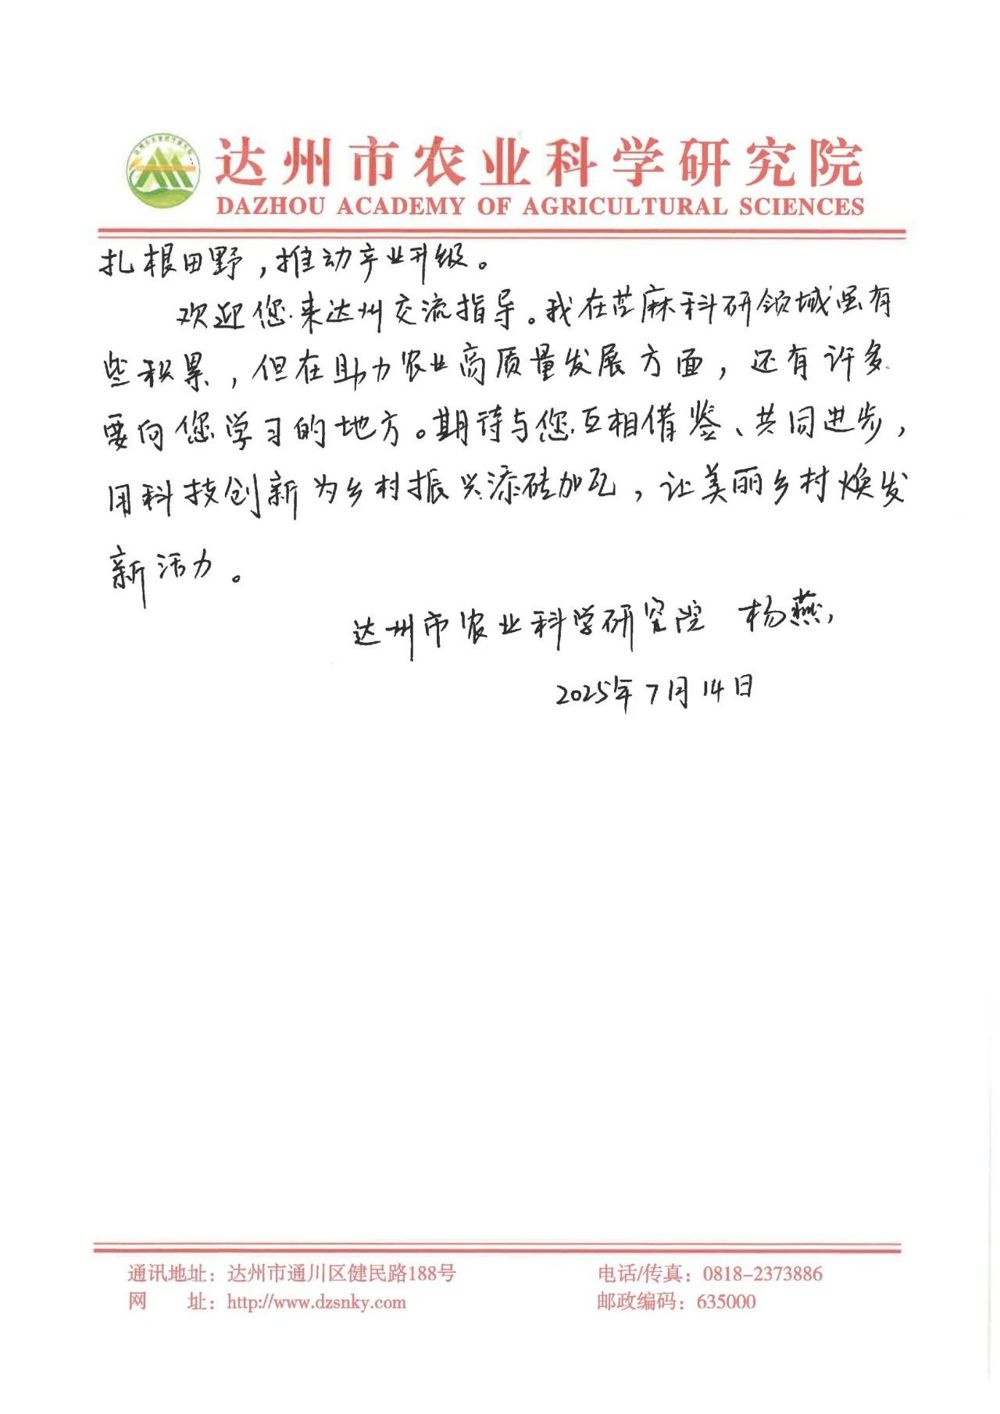 达州市农业科学研究院
DAZHOU ACADEMY OF AGRICULTURAL SCIENCES
扎根田野,推动产业升级。
欢迎您来达州交流指导。我在苎麻科研领域虽有
些积累,但在助力农业高质量发展方面,还有许多
要向您学习的地方。期待与您互相借鉴、共同进步,
用科技创新为乡村振兴添砖加瓦,让美丽乡村焕发
新活力。
达州市农业科学研究院 杨燕
2025年7月14日
通讯地址:达州市通川区健民路188号 电话/传真:0818-2373886
网 址:http://www.dzsnky.com 邮政编码:635000